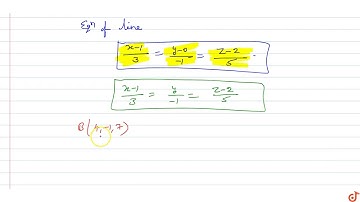 Eqn of line
(x-1)/3 = (y-0)/-1 = (z-2)/5
(x-1)/3 = y/-1 = (z-2)/5
B(4,-1,7)